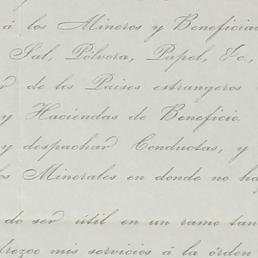 á los Mineros y Beneficiad
Sal, Pólvora, Papel, &c.,
de los Paises estrangeros
y Haciendas de Beneficio.
y despachar Conductas, y
os Minerales en donde no ha
do ser útil en un ramo tan
frezco mis servicios á la órden